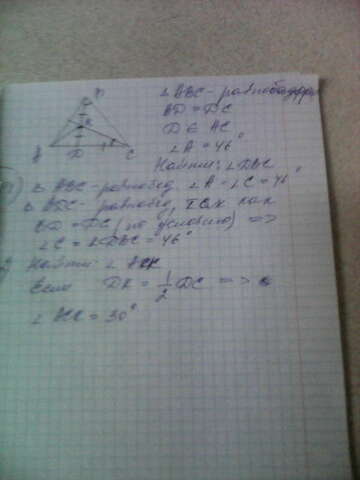 △ ABC - равнобедрен
BD = DC
D ∈ AC
∠A = 46°
Найти: ∠DBC
△ ABC - равнобед. ∠A = ∠C = 46°
△ BDC - равнобед, так как
BD = DC (по условию) =>
∠C = ∠DBC = 46°
Найти: ∠
Если DK = 1/2 DC =>
= 30°
A
D
C